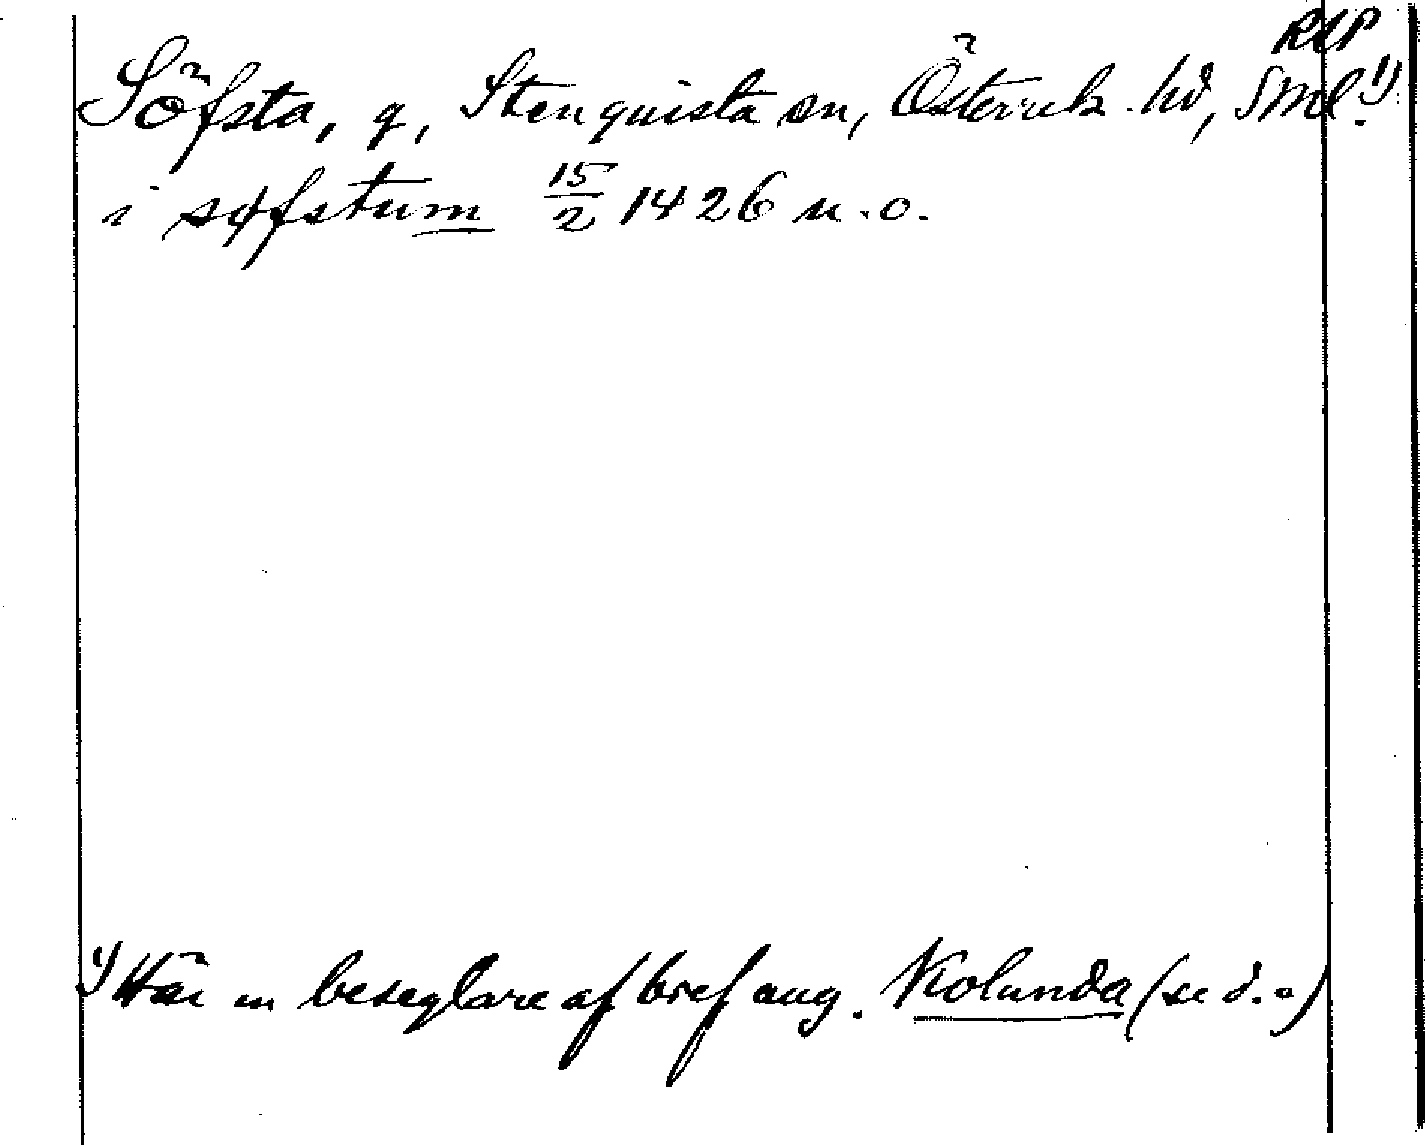 RAP
Söfsta, g, Stenquista sn, Österrek. hd, Sml.¹⁾
i søfstum 15/2 1426 u.o.
¹⁾ Här en beseglare af bref ang. Kolunda (se d.o)